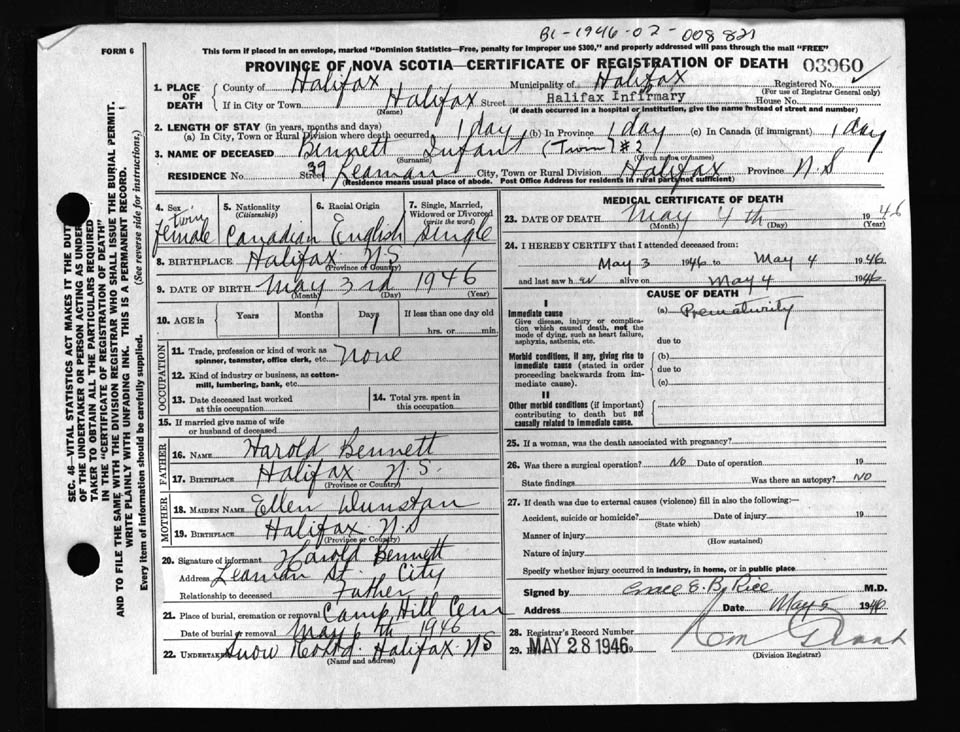 B1-1946-02-008821
FORM 6
This form if placed in an envelope, marked "Dominion Statistics—Free, penalty for improper use $300," and properly addressed will pass through the mail "FREE"
PROVINCE OF NOVA SCOTIA—CERTIFICATE OF REGISTRATION OF DEATH 03960
1. PLACE OF DEATH
County of Halifax Municipality of Halifax Registered No.
(For use of Registrar General only)
If in City or Town Halifax Street Halifax Infirmary House No.
(Name) (If death occurred in a hospital or institution, give the name instead of street and number)
2. LENGTH OF STAY (in years, months and days)
(a) In City, Town or Rural Division where death occurred 1 day (b) In Province 1 day (c) In Canada (if immigrant) 1 day
3. NAME OF DECEASED Bennett Infant (Twin) #2
(Surname) (Given name or names)
RESIDENCE No. 39 Street Leaman City, Town or Rural Division Halifax Province N.S
(Residence means usual place of abode. Post Office Address for residents in rural parts not sufficient)
4. Sex twin female
5. Nationality (Citizenship) Canadian
6. Racial Origin English
7. Single, Married, Widowed or Divorced (write the word) Single
8. BIRTHPLACE Halifax N.S
(Province or Country)
9. DATE OF BIRTH May 3rd 1946
(Month) (Day) (Year)
10. AGE in Years Months Days 1 If less than one day old
hrs. or min.
OCCUPATION
11. Trade, profession or kind of work as spinner, teamster, office clerk, etc. None
12. Kind of industry or business, as cotton-mill, lumbering, bank, etc.
13. Date deceased last worked at this occupation
14. Total yrs. spent in this occupation
15. If married give name of wife or husband of deceased
FATHER
16. NAME Harold Bennett
17. BIRTHPLACE Halifax N.S.
(Province or Country)
MOTHER
18. MAIDEN NAME Ellen Dunstan
19. BIRTHPLACE Halifax N.S
(Province or Country)
20. Signature of informant Harold Bennett
Address Leaman St. City
Relationship to deceased Father
21. Place of burial, cremation or removal Camp Hill Cem
Date of burial or removal May 6th 1946
22. Undertaker Snow Halifax N.S
(Name and address)
MEDICAL CERTIFICATE OF DEATH
23. DATE OF DEATH May 4th 1946
(Month) (Day) (Year)
24. I HEREBY CERTIFY that I attended deceased from:
May 3 1946 to May 4 1946
and last saw her alive on May 4 1946
CAUSE OF DEATH
I
Immediate cause
Give disease, injury or complication which caused death, not the mode of dying, such as heart failure, asphyxia, asthenia, etc.
(a) Prematurity
due to
Morbid conditions, if any, giving rise to immediate cause (stated in order proceeding backwards from immediate cause).
(b)
due to
(c)
II
Other morbid conditions (if important) contributing to death but not causally related to immediate cause.
25. If a woman, was the death associated with pregnancy?
26. Was there a surgical operation? No Date of operation 19
State findings Was there an autopsy? NO
27. If death was due to external causes (violence) fill in also the following:—
Accident, suicide or homicide? Date of injury 19
(State which)
Manner of injury
(How sustained)
Nature of injury
Specify whether injury occurred in industry, in home, or in public place
Signed by Grace E. B. Rice M.D.
Address Date May 5 1946
28. Registrar's Record Number
29. MAY 28 1946
(Division Registrar)
SEC. 46—VITAL STATISTICS ACT MAKES IT THE DUTY
OF THE UNDERTAKER OR PERSON ACTING AS UNDER-
TAKER TO OBTAIN ALL THE PARTICULARS REQUIRED
IN THE "CERTIFICATE OF REGISTRATION OF DEATH"
AND TO FILE THE SAME WITH THE DIVISION REGISTRAR WHO SHALL ISSUE THE BURIAL PERMIT.
WRITE PLAINLY WITH UNFADING INK. THIS IS A PERMANENT RECORD.
Every item of information should be carefully supplied. (See reverse side for instructions.)